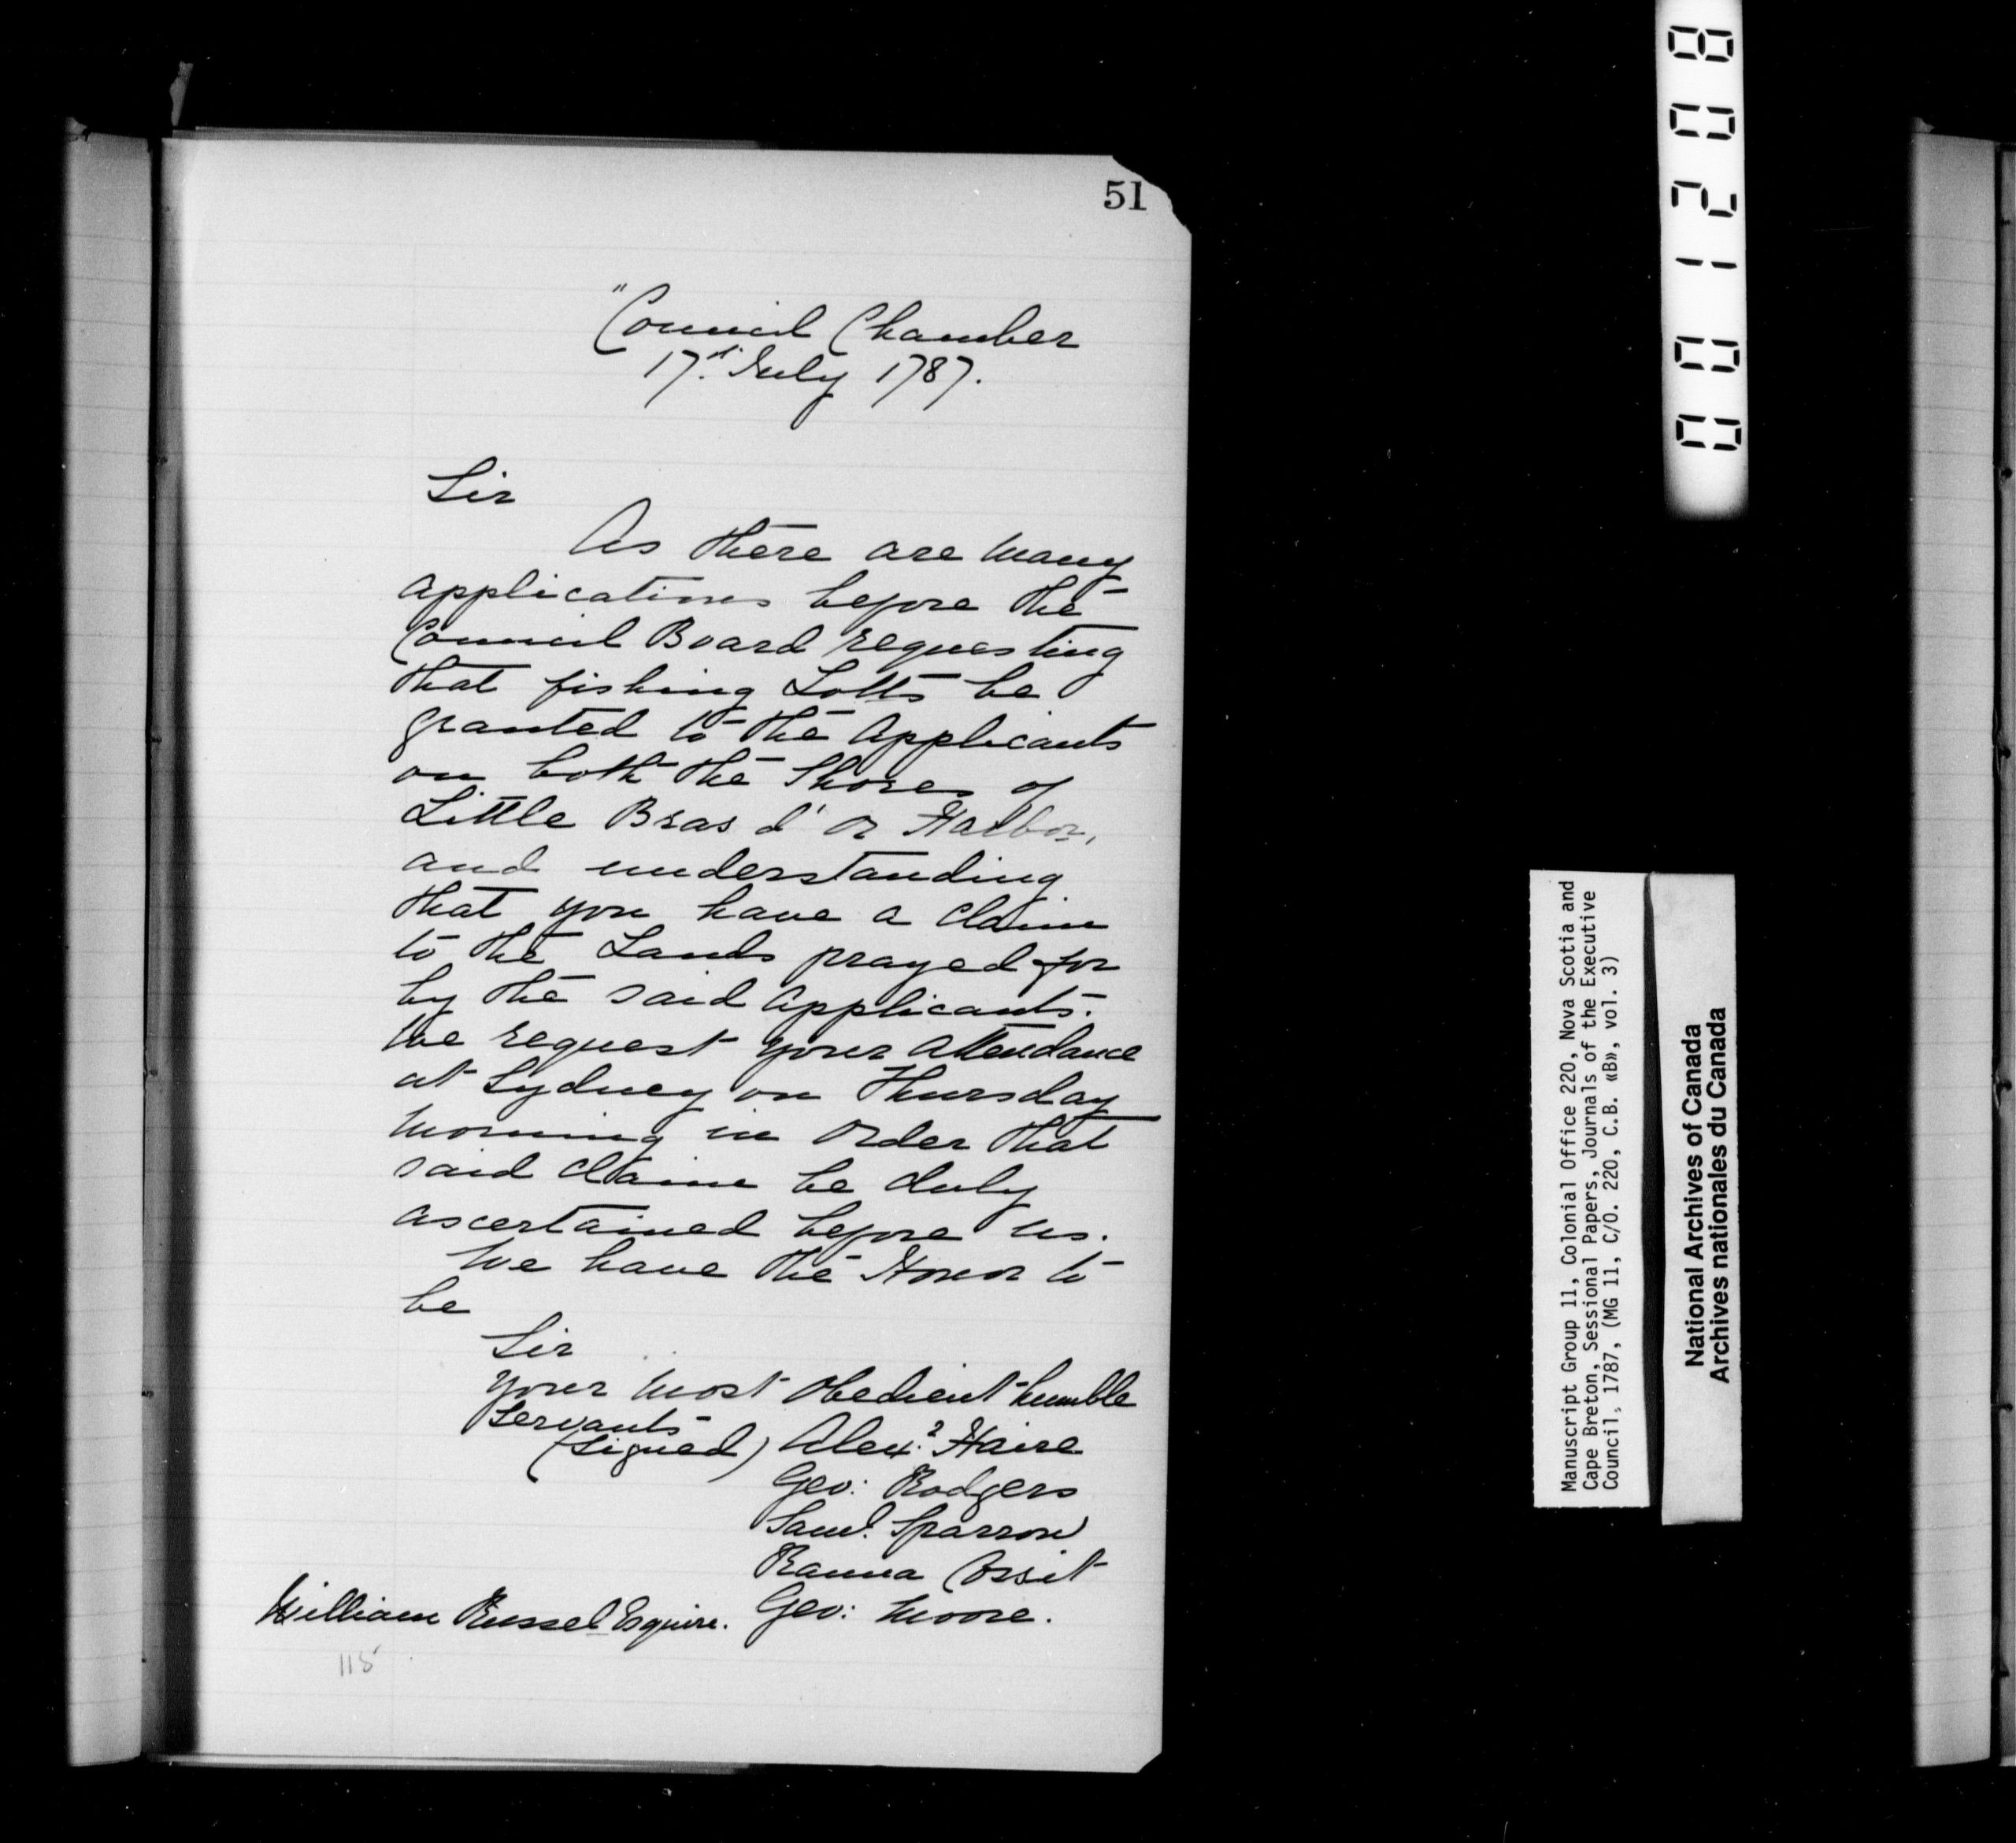 51
"Council Chamber
17th July 1787.
Sir
As there are many
applications before the
Council Board requesting
that fishing Lotts be
granted to the Applicants
on both the Shores of
Little Bras d'or Harbor,
and understanding
that you have a claim
to the Lands prayed for
by the said applicants.
We request your attendance
at Sydney on Thursday
morning in order that
said claim be duly
ascertained before us.
We have the Honor to
be
Sir
your most obedient humble
Servants
(signed) Alexr. Haire
Geo: Rodgers
Saml. Sparrow
Ranna Cossit
William Russel Esquire. Geo: Moore.
118
001208
Manuscript Group 11, Colonial Office 220, Nova Scotia and
Cape Breton, Sessional Papers, Journals of the Executive
Council, 1787, (MG 11, C/O. 220, C.B. «B», vol. 3)
National Archives of Canada
Archives nationales du Canada